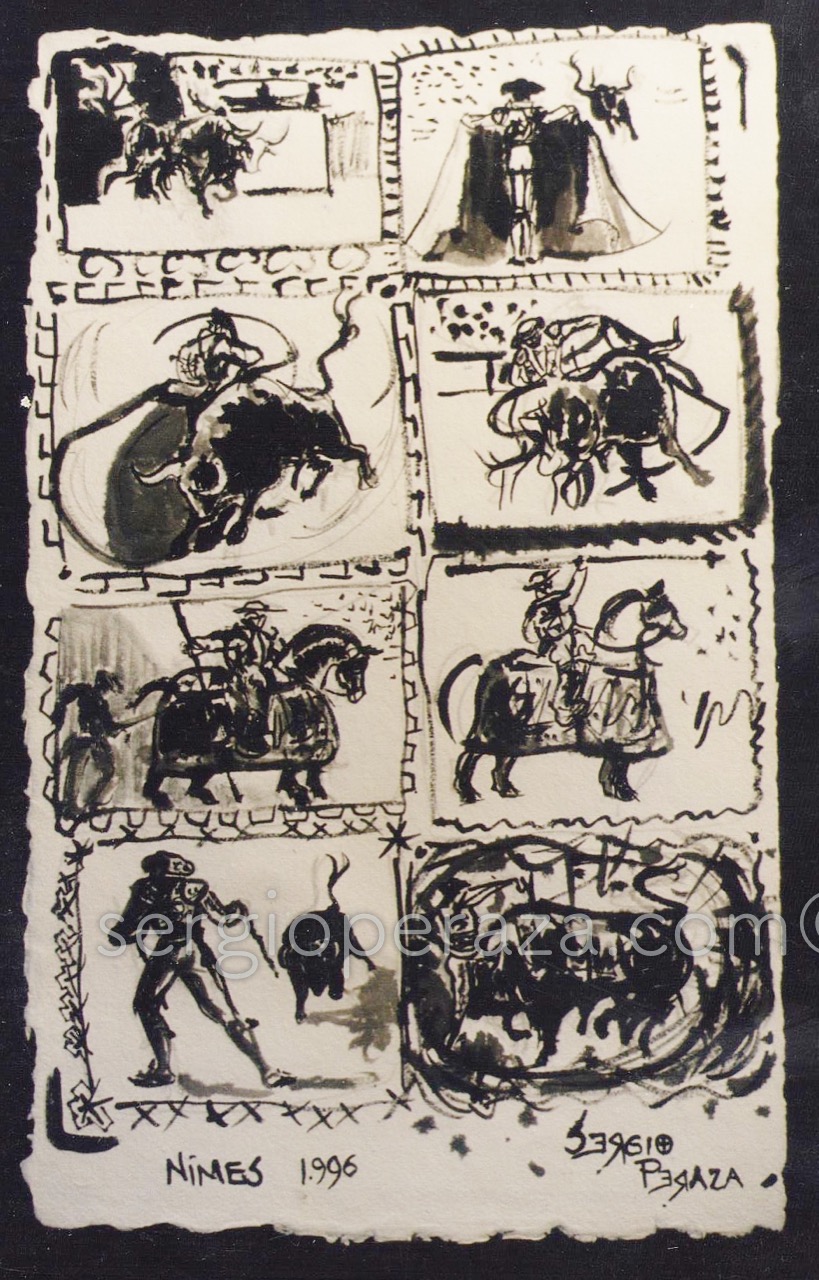 sergioperaza.com©
NÎMES 1.996
SERGIO
PERAZA